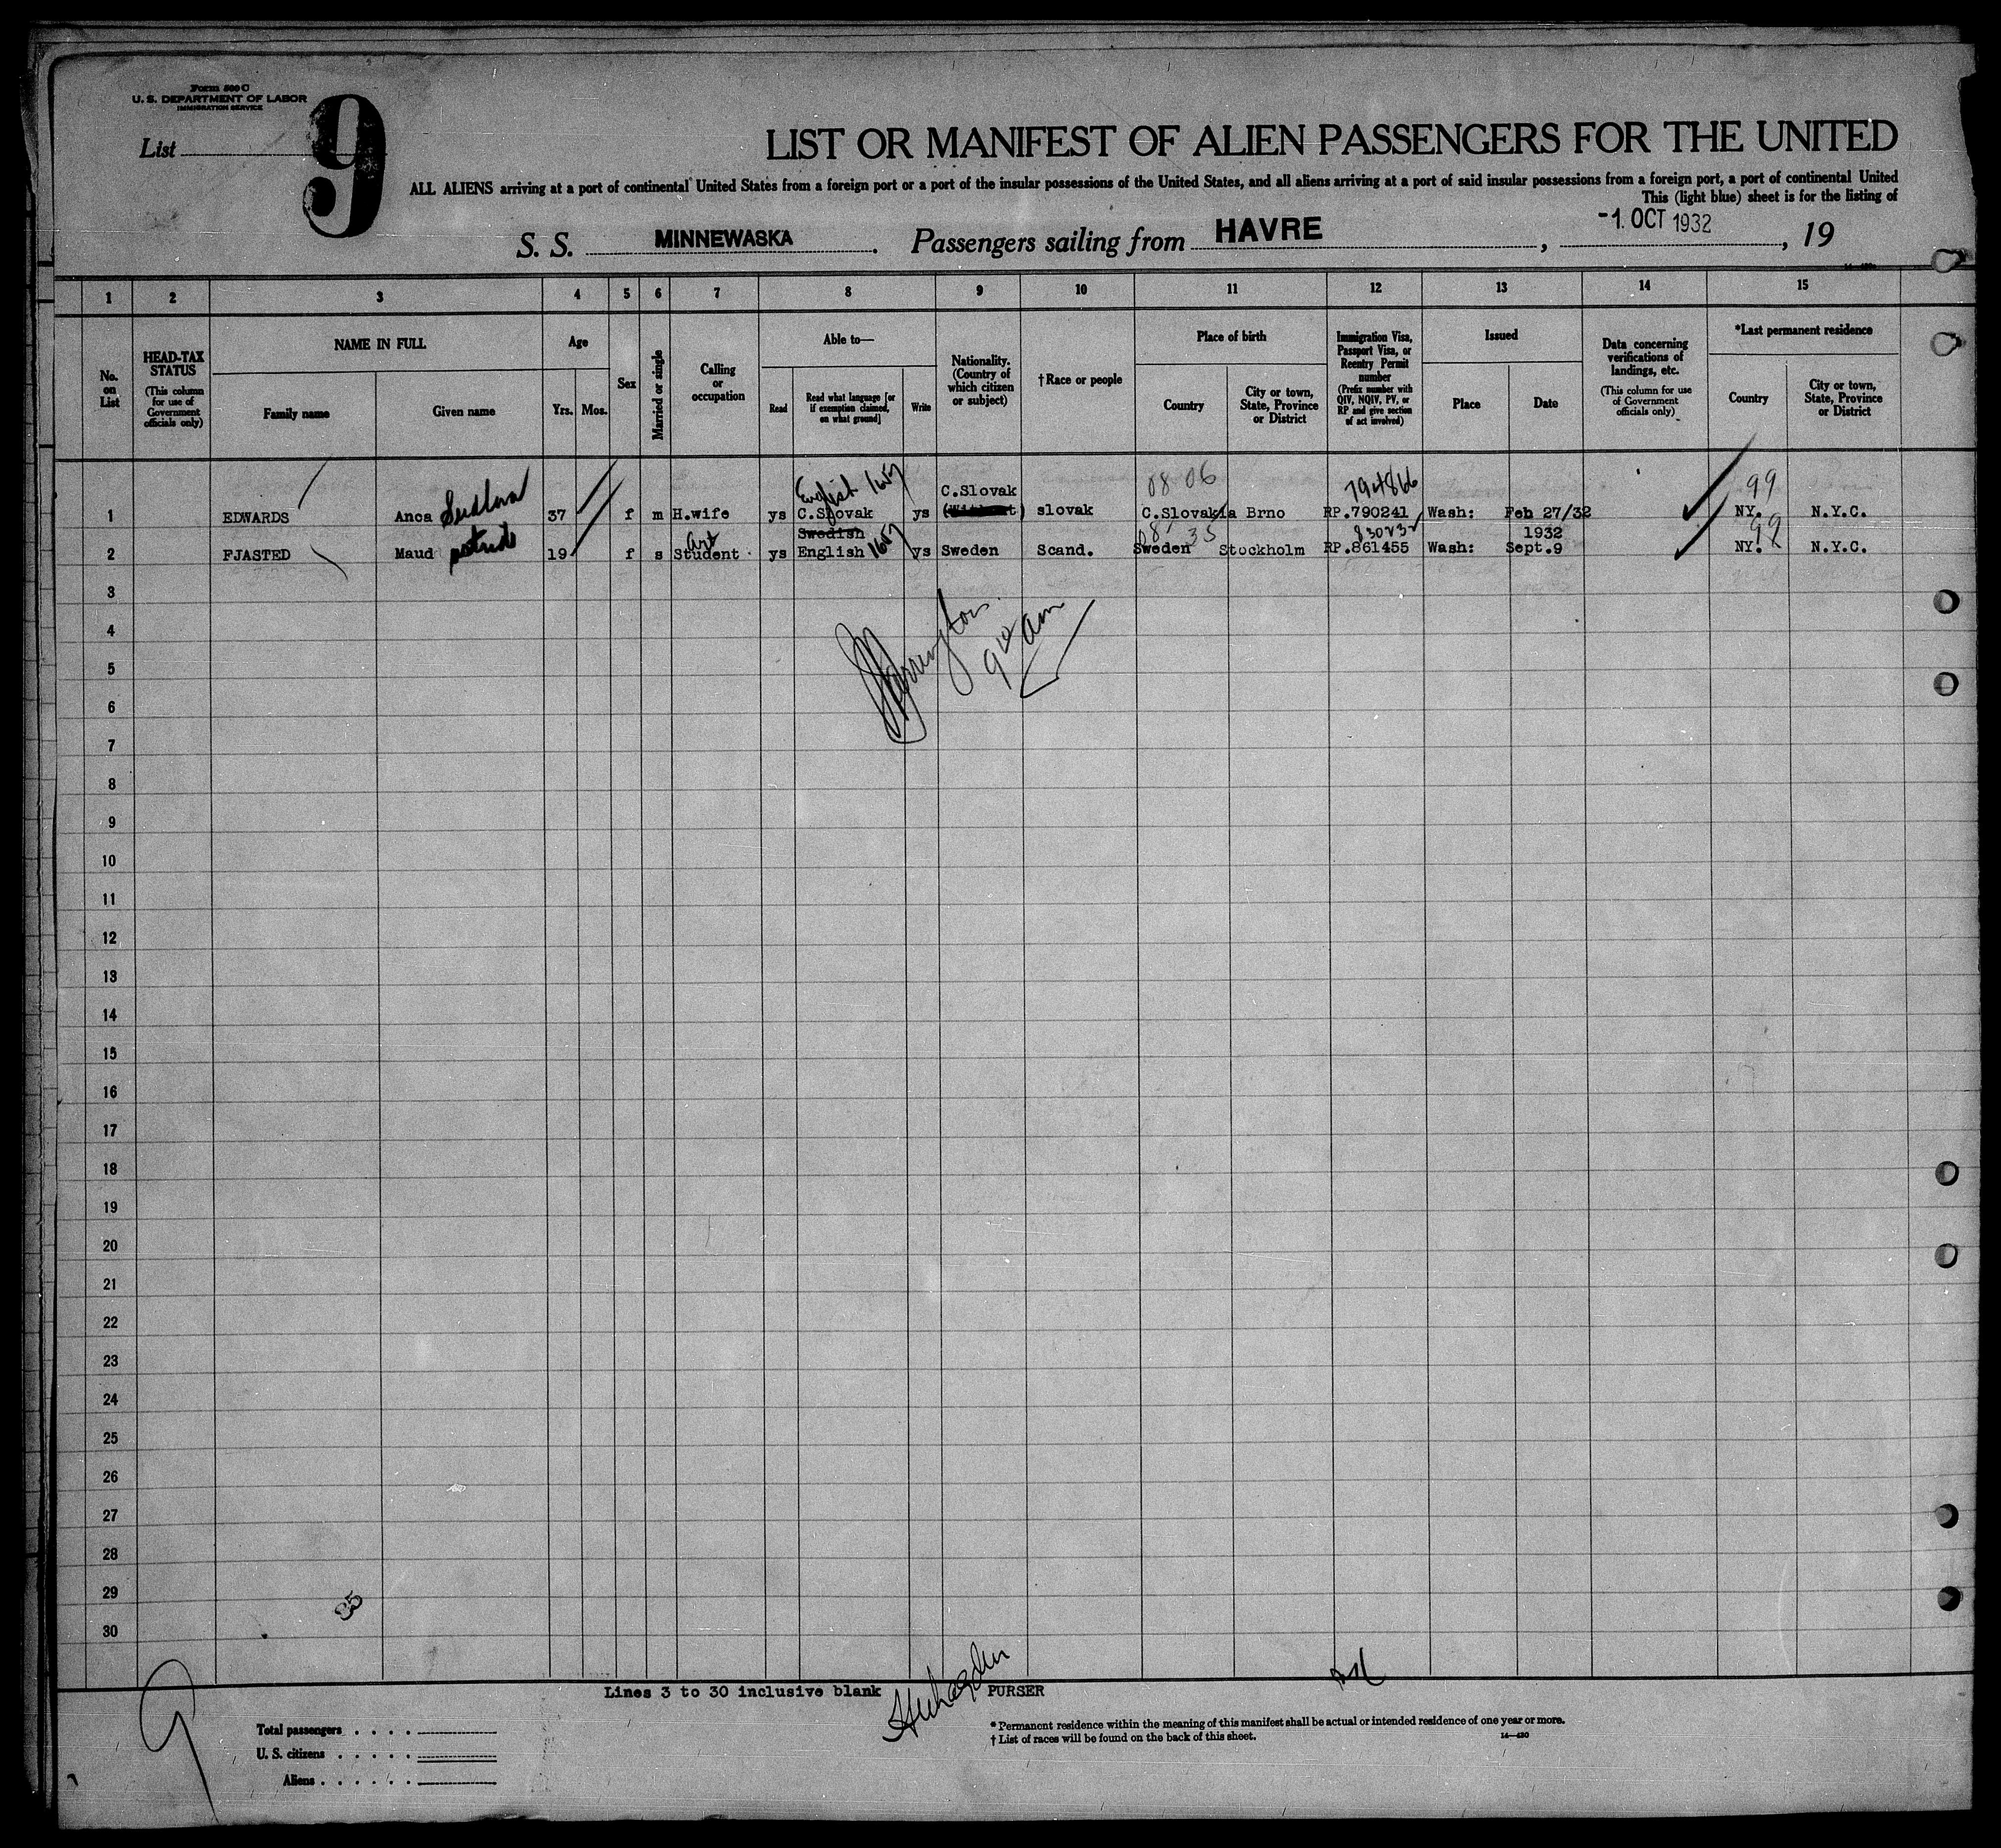 Form 500 C
U. S. DEPARTMENT OF LABOR
IMMIGRATION SERVICE
List 9
LIST OR MANIFEST OF ALIEN PASSENGERS FOR THE UNITED
ALL ALIENS arriving at a port of continental United States from a foreign port or a port of the insular possessions of the United States, and all aliens arriving at a port of said insular possessions from a foreign port, a port of continental United
This (light blue) sheet is for the listing of
S. S. MINNEWASKA. Passengers sailing from HAVRE, -1. OCT 1932, 19
1 2 3 4 5 6 7 8 9 10 11 12 13 14 15
No. on List
HEAD-TAX STATUS (This column for use of Government officials only)
NAME IN FULL
Family name
Given name
Age
Yrs. Mos.
Sex
Married or single
Calling or occupation
Able to—
Read
Read what language [or if exemption claimed, on what ground]
Write
Nationality. (Country of which citizen or subject)
†Race or people
Place of birth
Country
City or town, State, Province or District
Immigration Visa, Passport Visa, or Reentry Permit number (Prefix number with QIV, NQIV, PV, or RP and give section of act involved)
Issued
Place
Date
Data concerning verifications of landings, etc. (This column for use of Government officials only)
*Last permanent residence
Country
City or town, State, Province or District
English C.Slovak 0806 794866 99
1 EDWARDS Anca 37 f m H.wife ys C.Slovak ys slovak C.Slovakia Brno RP.790241 Wash: Feb 27/32 NY. N.Y.C.
Art Swedish 1657 08 35 830232 1932 99
2 FJASTED Maud 19 f s Student ys English ys Sweden Scand. Sweden Stockholm RP.861455 Wash: Sept.9 NY. N.Y.C.
3
4
5
6
7
8
9
10
11
12
13
14
15
16
17
18
19
20
21
22
23
24
25
26
27
28
29
30
35
9 10 am
Lines 3 to 30 inclusive blank PURSER
9
Total passengers
U. S. citizens
Aliens
* Permanent residence within the meaning of this manifest shall be actual or intended residence of one year or more.
† List of races will be found on the back of this sheet.
14—430